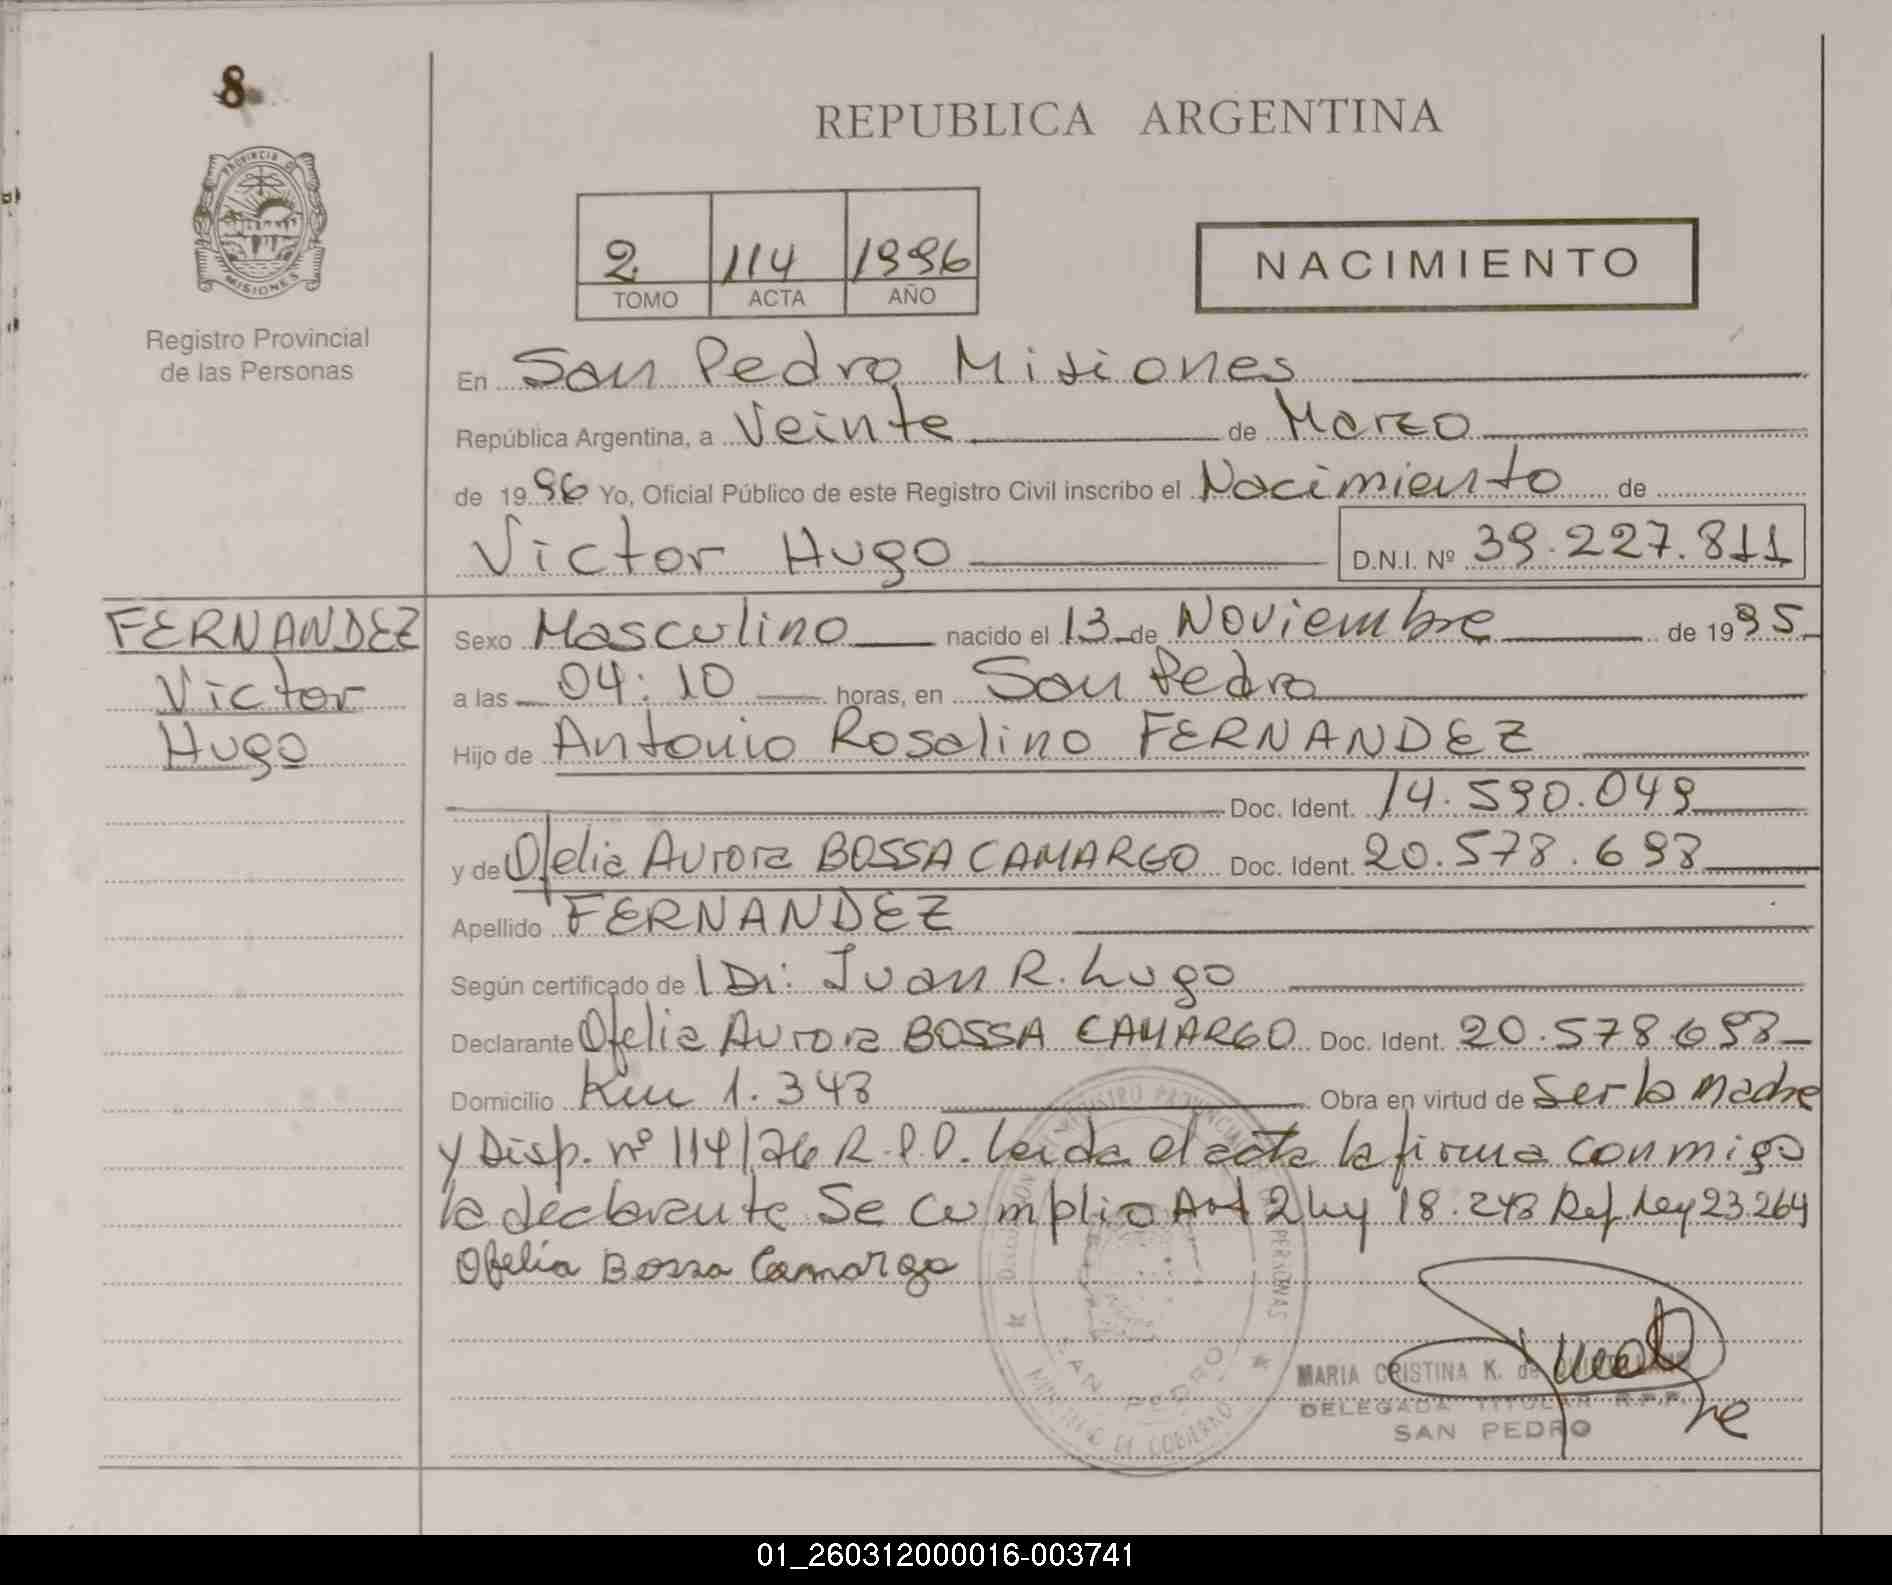 8
PROVINCIA DE
MISIONES
Registro Provincial
de las Personas
REPUBLICA ARGENTINA
2 114 1996
TOMO ACTA AÑO
NACIMIENTO
En San Pedro Misiones
República Argentina, a Veinte de Marzo
de 1996 Yo, Oficial Público de este Registro Civil inscribo el Nacimiento de
Victor Hugo D.N.I. Nº 39.227.811
FERNANDEZ
Victor
Hugo
Sexo Masculino nacido el 13 de Noviembre de 1995
a las 04:10 horas, en San Pedro
Hijo de Antonio Rosalino FERNANDEZ
Doc. Ident. 14.590.049
y de Ofelia Aurora BOSSA CAMARGO Doc. Ident. 20.578.698
Apellido FERNANDEZ
Según certificado de Dr: Juan R. Lugo
Declarante Ofelia Aurora BOSSA CAMARGO Doc. Ident. 20.578.698
Domicilio Km 1.343 Obra en virtud de Ser la madre
y Disp. nº 114/76 R.P.P. Leida el acta la firma conmigo
la declarante Se cumplio Art 2 Ley 18.248 Ref. Ley 23.264
Ofelia Bossa Camargo
REGISTRO PROVINCIAL DE LAS PERSONAS
SAN PEDRO
MINISTERIO DE GOBIERNO
MARIA CRISTINA K. de
DELEGADA TITULAR R.P.P.
SAN PEDRO
01_260312000016-003741